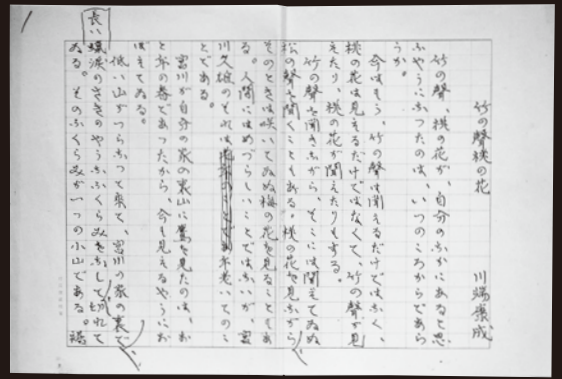 竹の聲桃の花
川端康成
竹の聲、桃の花が、自分のなかにあると思
ふやうになつたのは、いつのころからであら
うか。
今はもう、竹の聲は聞えるだけではなく、
桃の花は見えるだけではなくて、竹の聲が見
えたり、桃の花が聞えたりもする。
竹の聲を聞きながら、そこには聞えてゐぬ
松の聲を聞くこともある。桃の花を見ながら
そのときは咲いてゐぬ梅の花を見ることもあ
る。人間にはめづらしいことではないが、宮
川久雄のそれは
年老いてのこ
とである。
宮川が自分の家の裏山に鷹を見たのは、お
と年の春であつたから、今も見えるやうにお
ぼえてゐる。
低い山がつらなつて来て、宮川の家の裏で
長い
のさきのやうなふくらみをなして切れて
ゐる。そのふくらみが一つの小山である。